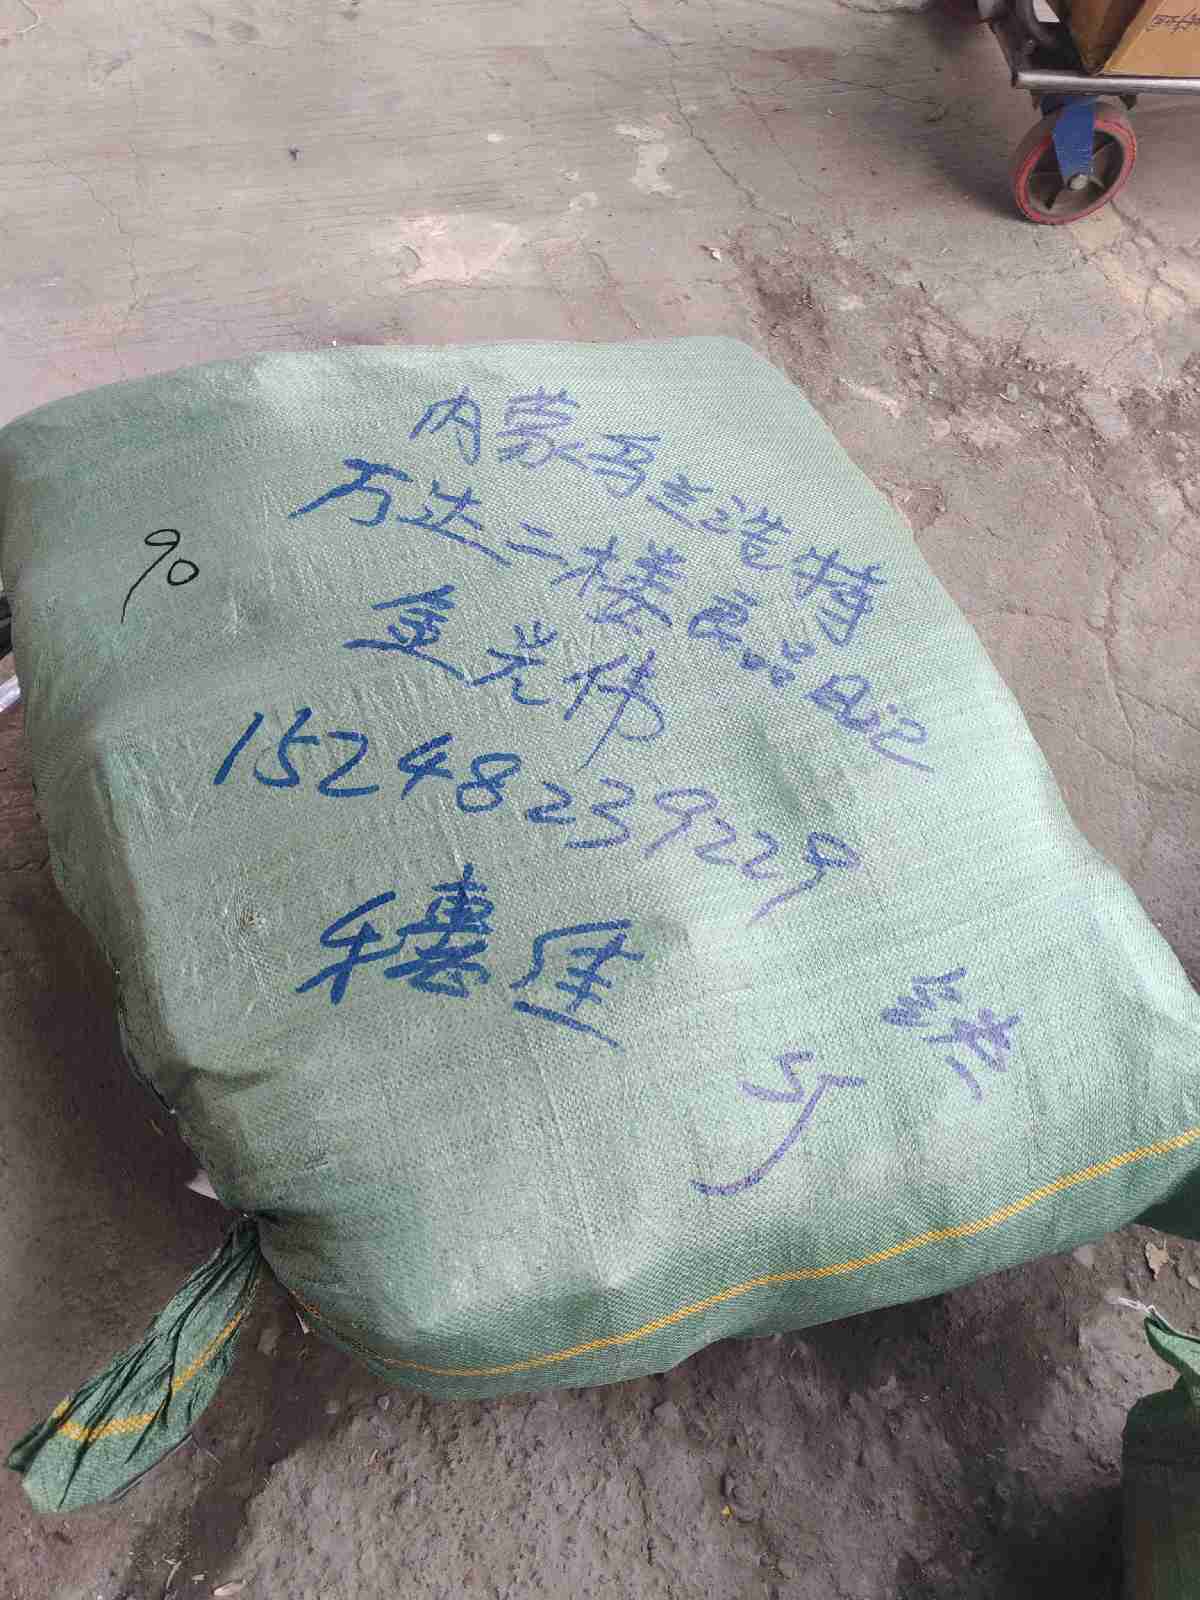 内蒙乌兰浩特
万达二楼良品日记
90
金光伟
15248239229
穗佳